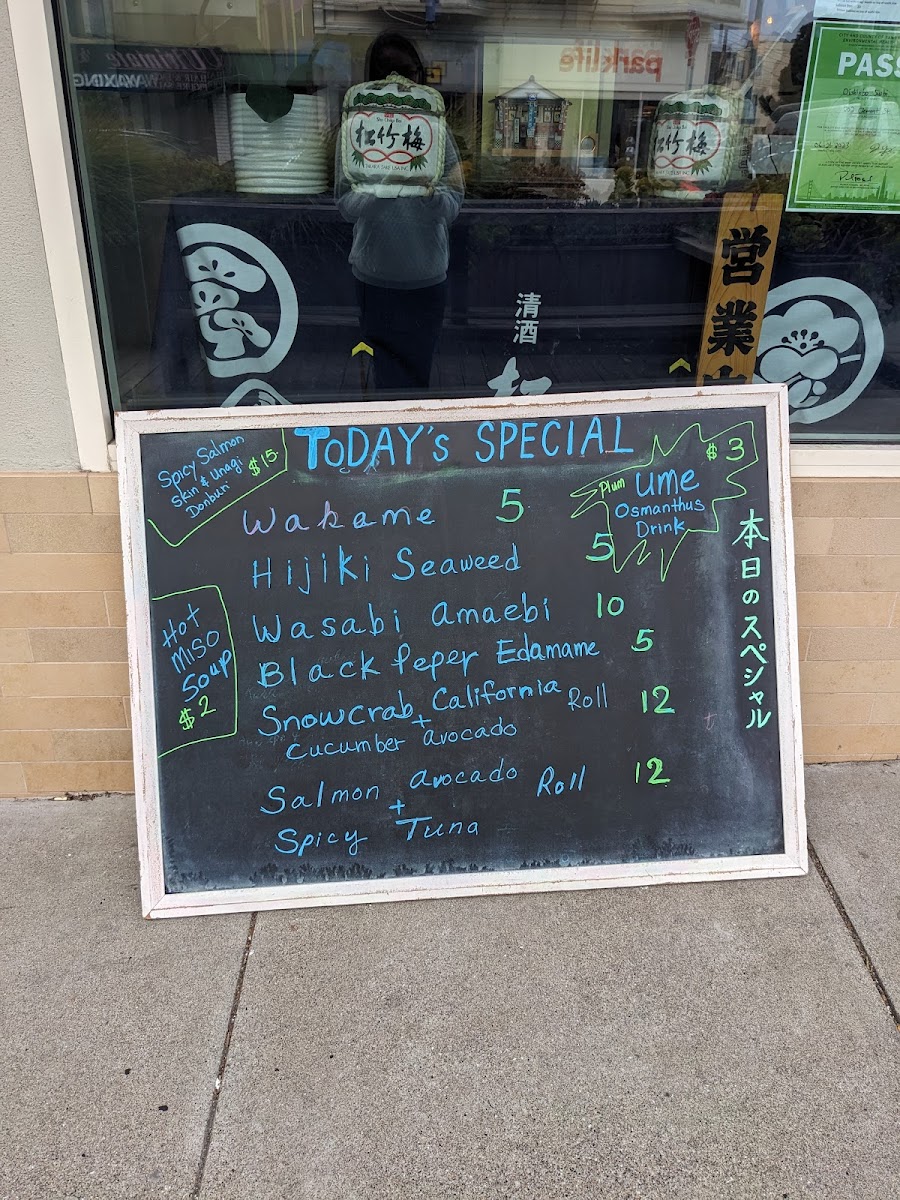 WAXING
parklife
PASS
松竹梅
松竹梅
営業
清酒
TODAY'S SPECIAL
Spicy Salmon
Skin & Unagi $15
Donburi
$3
Plum Ume
Osmanthus
Drink
Wakame 5
Hijiki Seaweed 5
Wasabi Amaebi 10
Black Peper Edamame 5
Snowcrab California Roll 12
+
Cucumber avocado
Salmon avocado Roll 12
+
Spicy Tuna
Hot
MISO
Soup
$2
本日のスペシャル